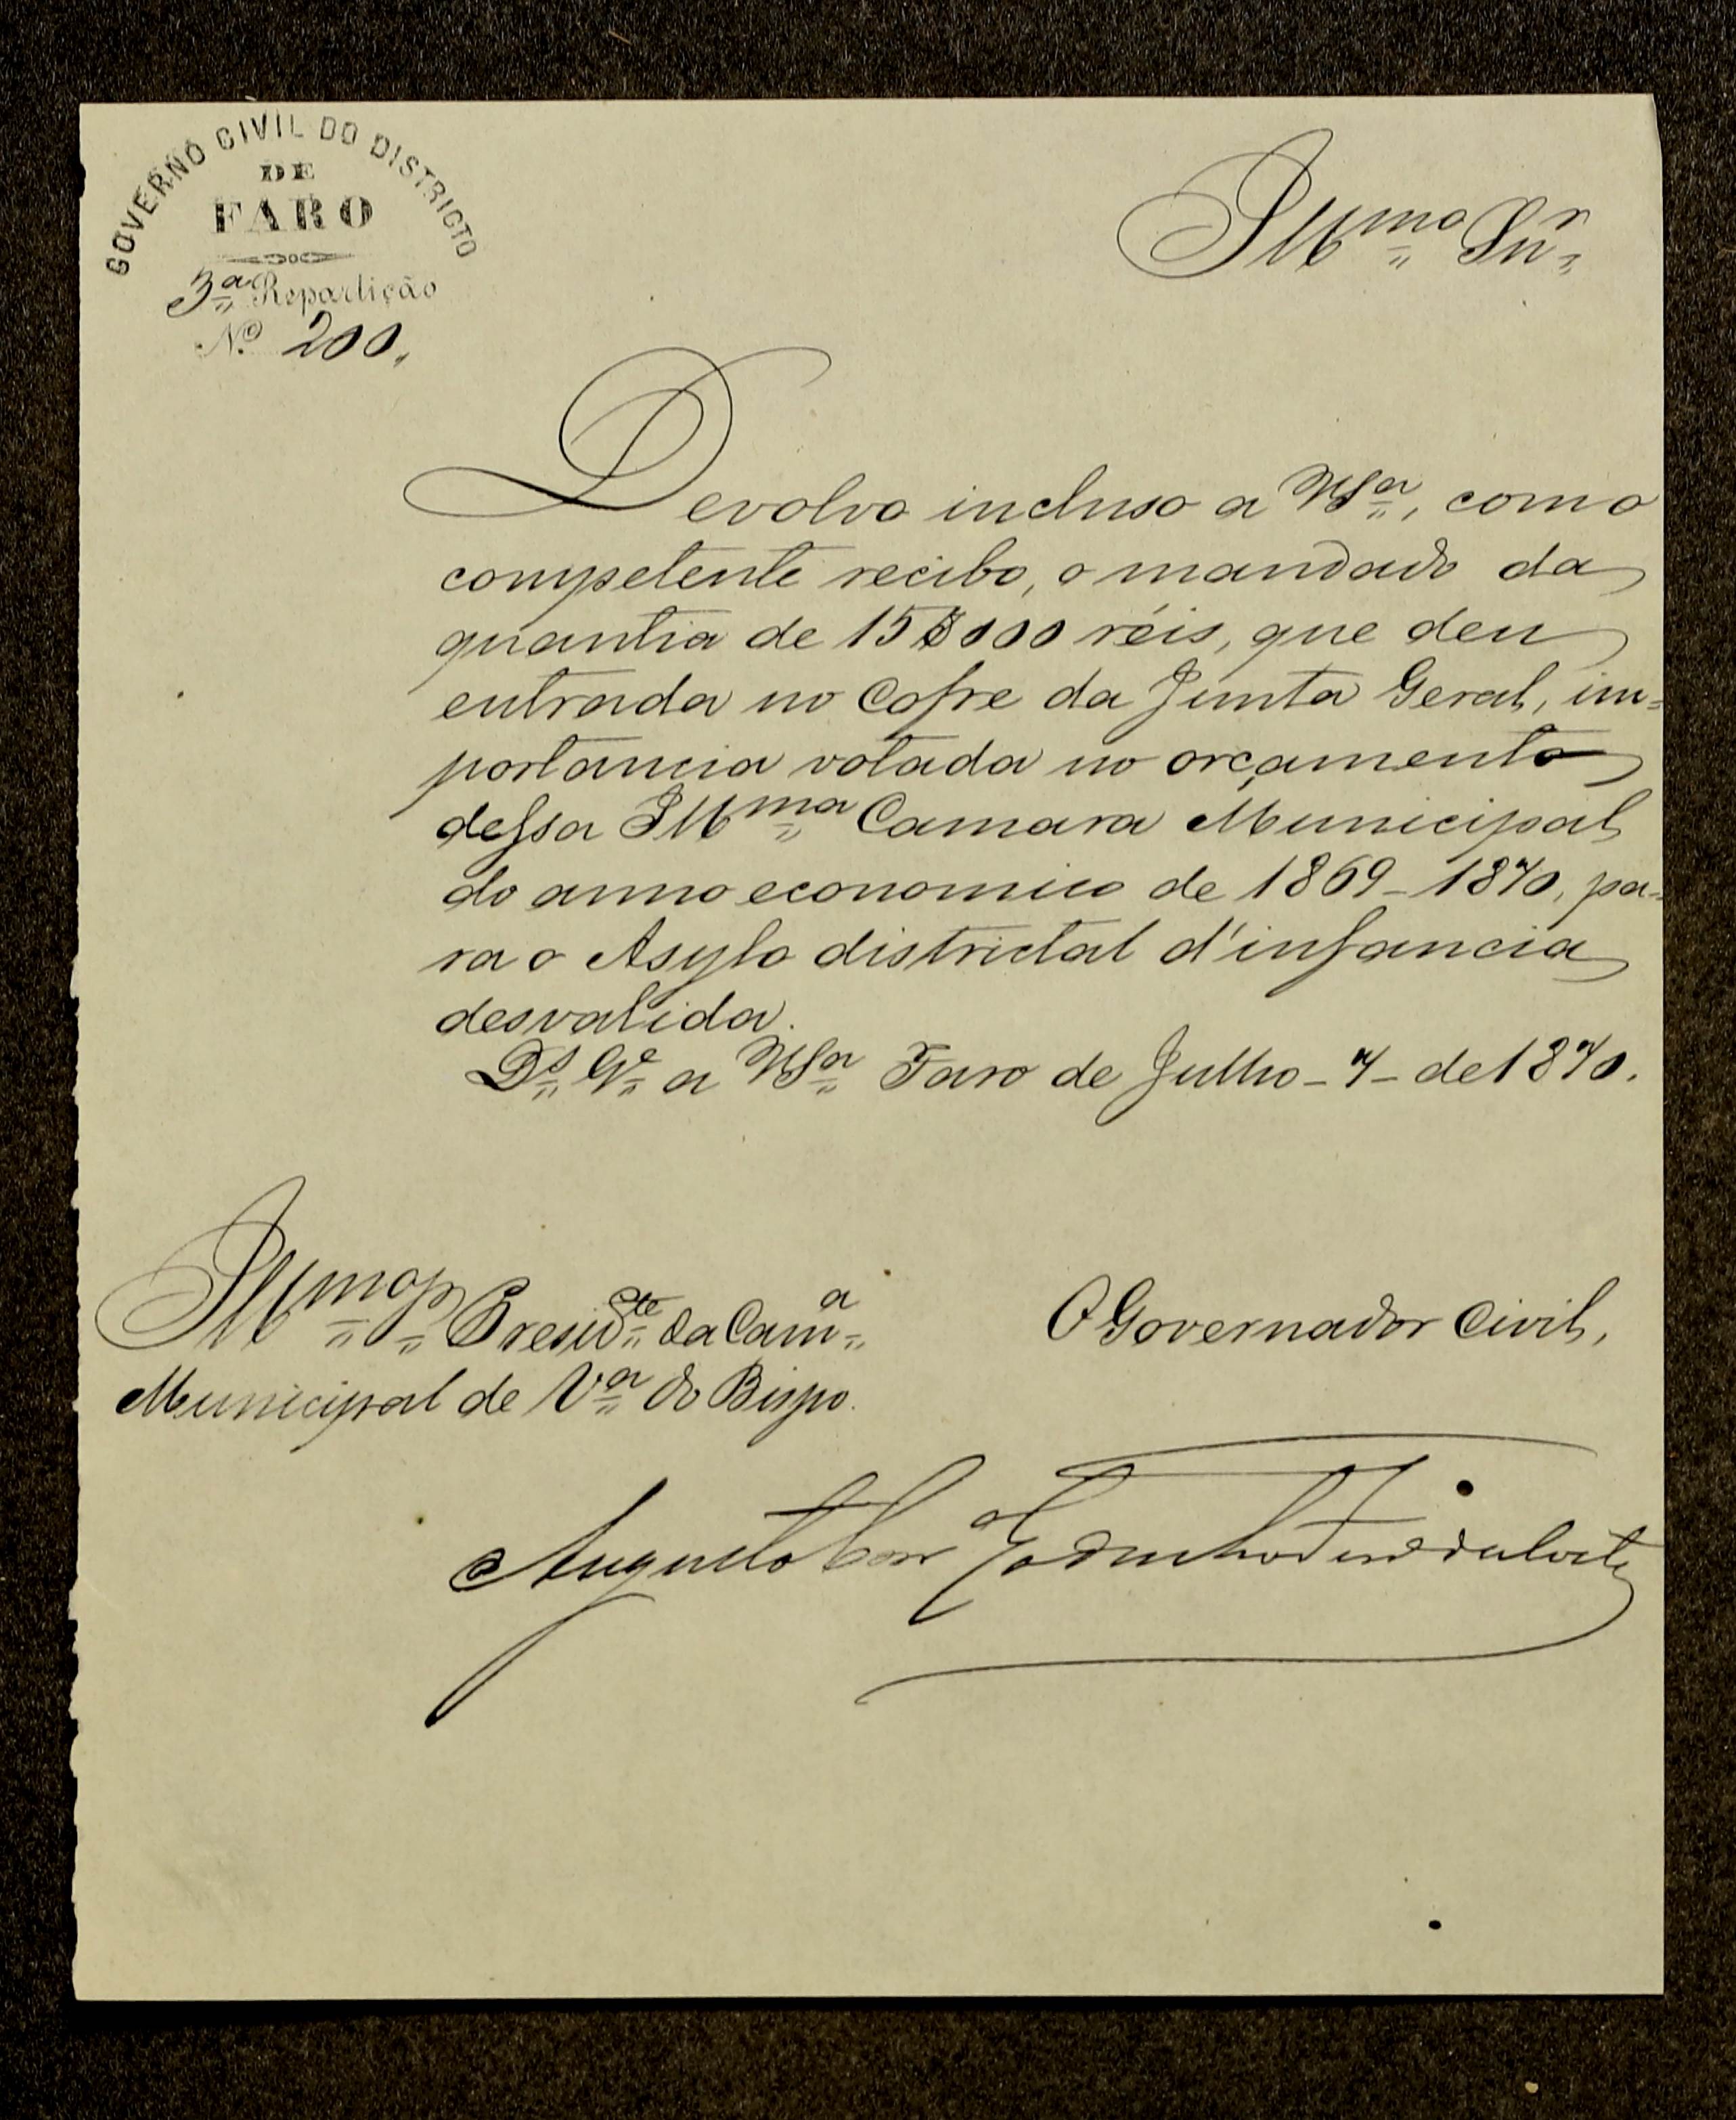 GOVERNO CIVIL DO DISTRICTO
DE
FARO
3ª Repartição
Nº 200.
Illmo Snr
Devolvo incluso a VSª, com o
competente recibo, o mandado da
quantia de 15$000 réis, que deu
entrada no Cofre da Junta Geral, im=
portancia votada no orçamento
dessa Illma Camara Municipal
do anno economico de 1869-1870, pa-
ra o Asylo districtal d'infancia
desvalida.
Ds Ge a VSª Faro de Julho - 7 - de 1870.
Illmo Sr Preside da Camª
Municipal de Vª do Bispo.
O Governador Civil,
Augusto